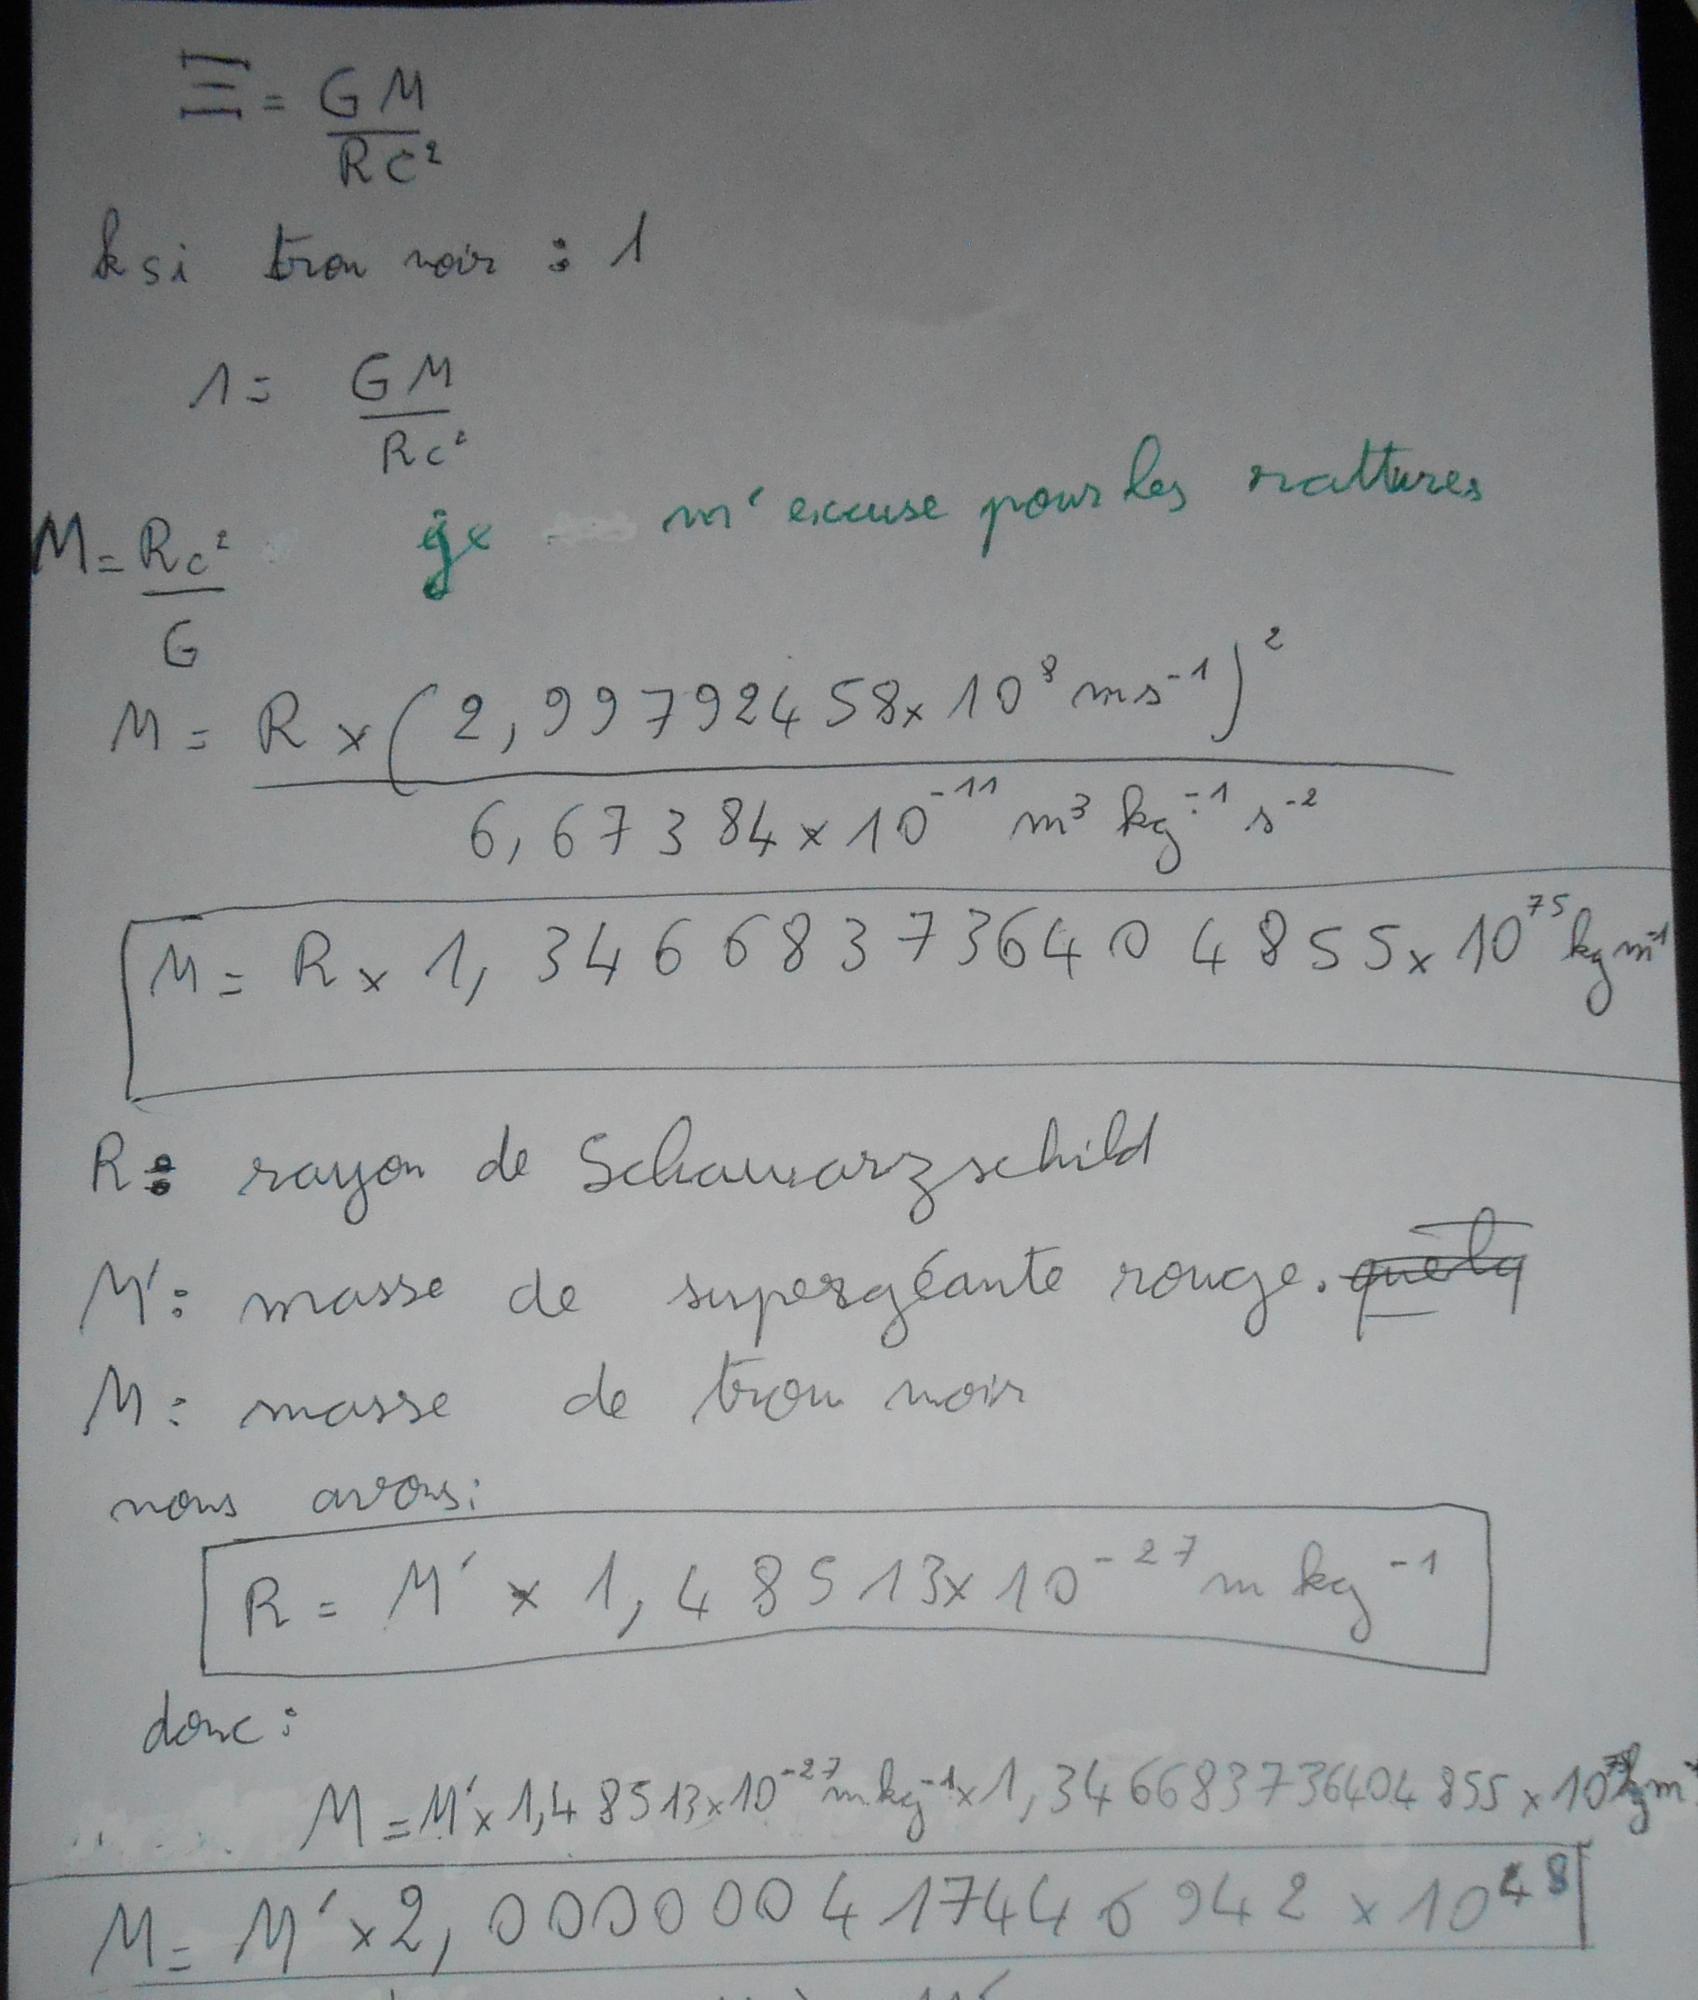 Ξ = GM
Rc²
ksi trou noir : 1
1 = GM
Rc²
je m'excuse pour les rattures
M = Rc²
G
M = R × (2,99792458 × 10⁸ ms⁻¹)²
6,67384 × 10⁻¹¹ m³ kg⁻¹ s⁻²
M = R × 1,34668373640 4855 × 10⁷⁵ kg m⁻¹
R : rayon de Schawarzschild
M' : masse de supergéante rouge.
M : masse de trou noir
nous avons :
R = M' × 1,48513 × 10⁻²⁷ m kg⁻¹
donc :
M = M' × 1,48513 × 10⁻²⁷ m kg⁻¹ × 1,346683736404855 × 10⁷⁵ kg m⁻¹
M = M' × 2,00000041744 6942 × 10⁴⁸